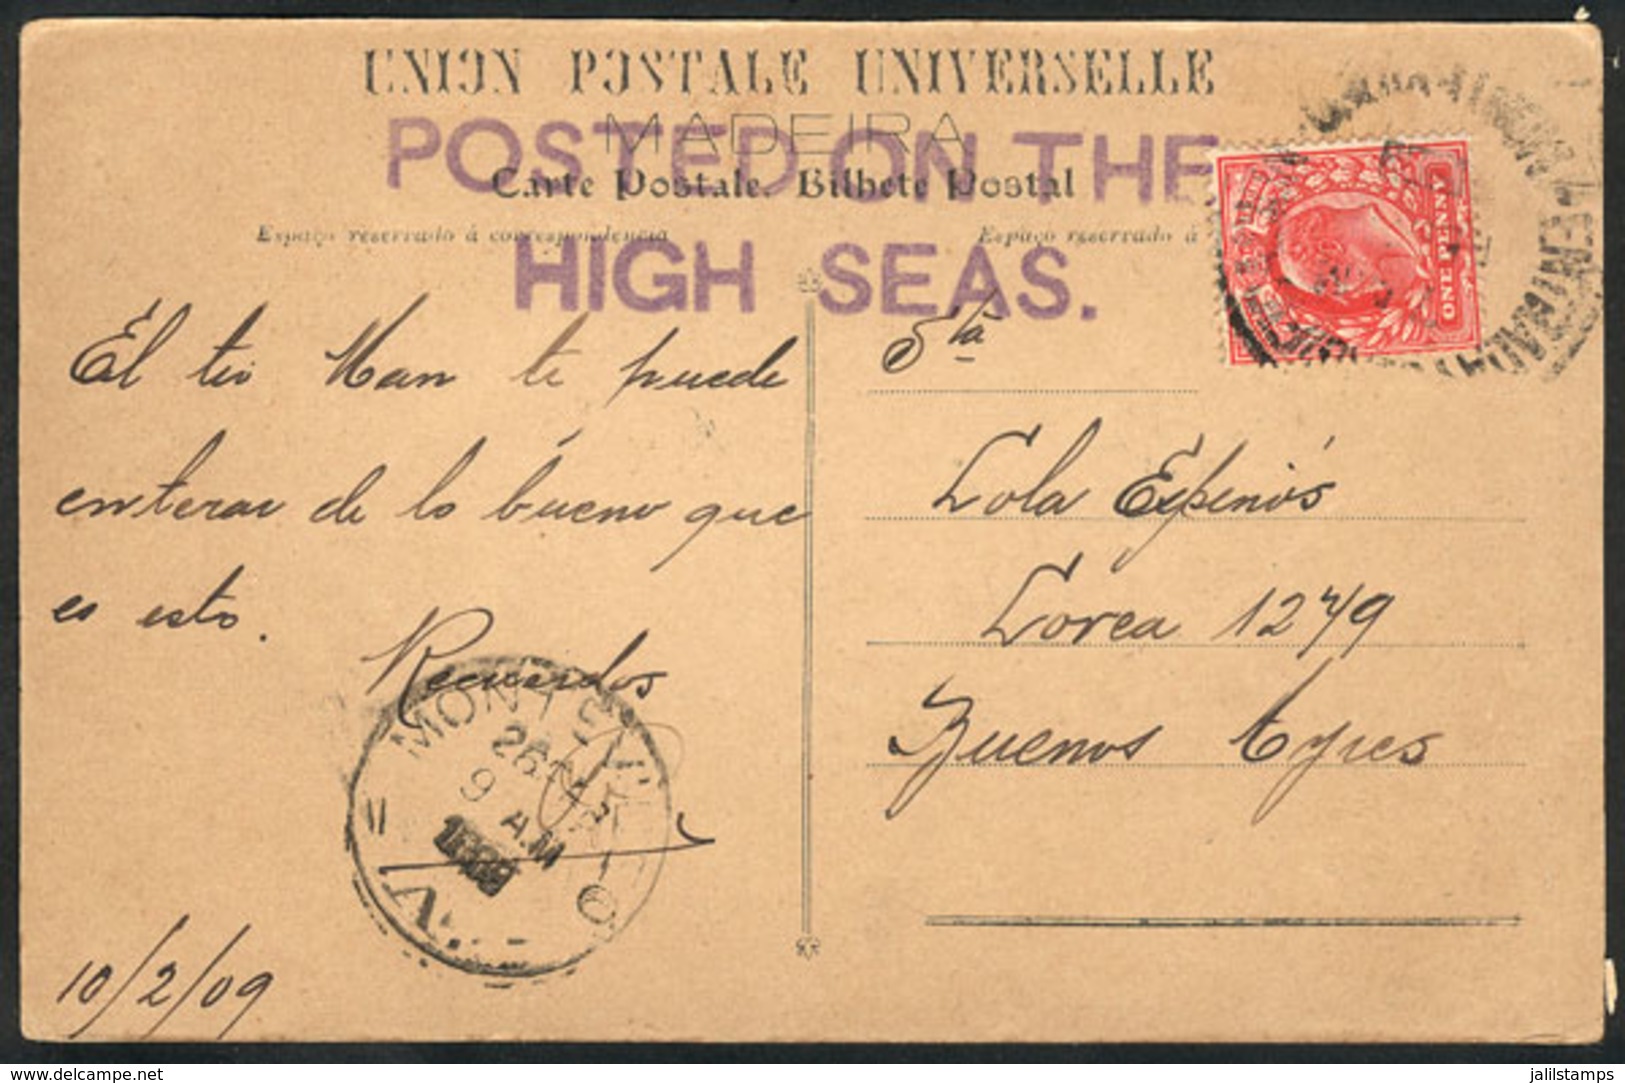 UNION POSTALE UNIVERSELLE
MADEIRA
POSTED ON THE
Carte Postale. Bilhete Postal
Espaço reservado á correspondencia
Espaço reservado á
HIGH SEAS.
ONE PENNY
El tio Man te puede
enterar de lo bueno que
es esto.
Recuerdos
10/2/09
Sta
Lola Espinós
Lorea 1279
Buenos Ayres
MONTEVIDEO
26
9 A.M
www.delcampe.net
jalilstamps